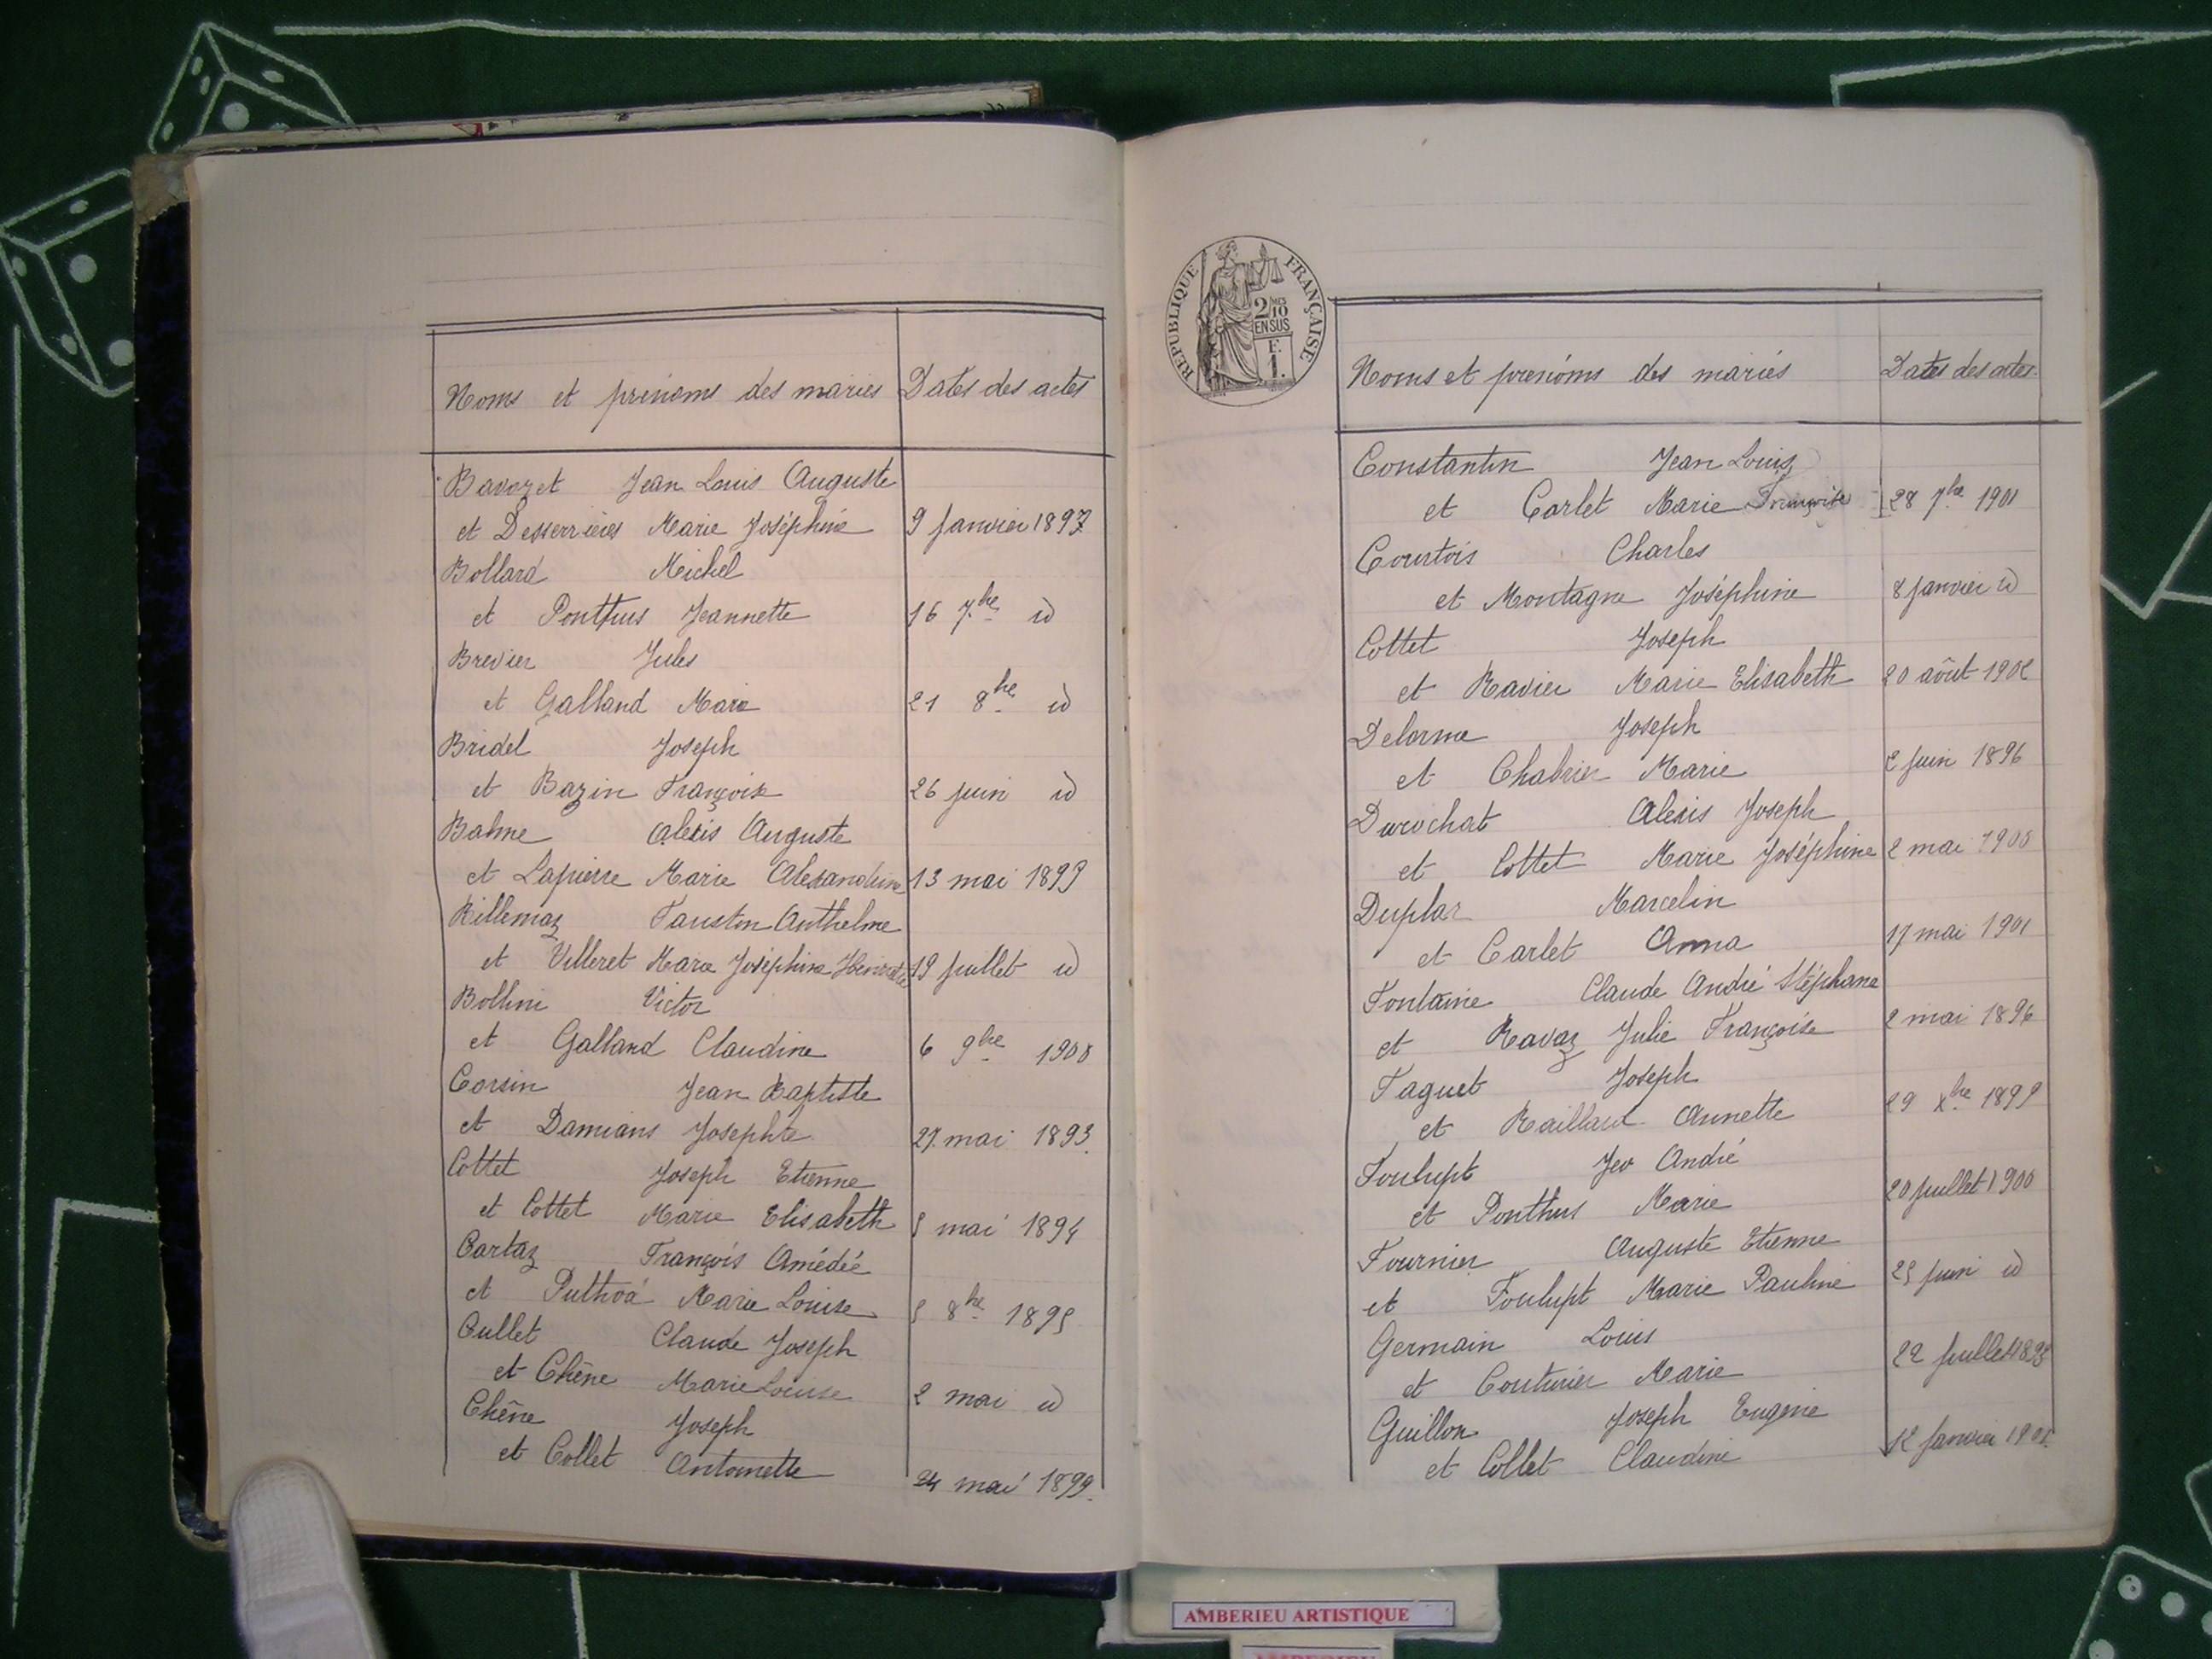 Noms et prénoms des mariés Dates des actes
Bavozet Jean Louis Auguste
et Desserrières Marie Joséphine 9 janvier 1897
Bollard Michel
et Ponthus Jeannette 16 7bre id
Brevier Jules
et Galland Marie 21 8bre id
Bridel Joseph
et Bazin François 26 juin id
Balme Alexis Auguste
et Lapierre Marie Alexandrine 13 mai 1899
Billemaz Anthelme
et Villeret Marie Joséphine 19 juillet id
Bollini Victor
et Galland Claudine 6 9bre 1900
Corsin Jean Baptiste
et Damians Josephte 27 mai 1893.
Cottet Joseph Etienne
et Cottet Marie Elisabeth 5 mai 1894
Cartaz François Amédée
et Marie Louise 5 8bre 1895
Cullet Claude Joseph
et Chêne Marie Louise 2 mai id
Chêne Joseph
et Collet Antoinette 24 mai 1899.
REPUBLIQUE FRANÇAISE
2/10 MES
EN SUS
F.
1.
Noms et prénoms des mariés Dates des actes.
Constantin Jean Louis
et Carlet Marie Françoise 28 7bre 1901
Courtois Charles
et Montagne Joséphine 8 janvier id
Cottet Joseph
et Ravier Marie Elisabeth 20 août 1902
Delorme Joseph
et Chabrier Marie 2 juin 1896
Durochat Alexis Joseph
et Cottet Marie Joséphine 2 mai 1900
Duplar Marcelin
et Carlet Anna 17 mai 1901
Fontaine Claude André Stéphane
et Ravaz Julie Françoise 2 mai 1896
Faguet Joseph
et Raillard Annette 29 Xbre 1899
Foulupt André
et Ponthus Marie 20 juillet 1900
Fournier Auguste Etienne
et Foulupt Marie Pauline 25 juin id
Germain Louis
et Couturier Marie 22 juillet
Guillon Joseph Eugène
et Collet Claudine 12 janvier
AMBERIEU ARTISTIQUE